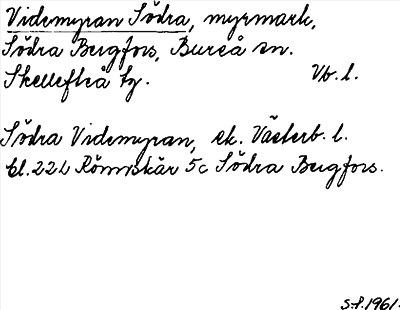 Videmyran Södra, myrmark,
Södra Bergfors, Bureå sn.
Skellefteå tg. Vb. l.
Södra Videmyran, ek. Västerb. l.
bl. 22L Rönnskär 5c Södra Bergfors.
S.F. 1961.